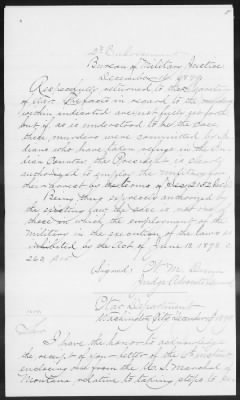 2d Endorsement
Bureau of Military Justice
December 16, 1879
Respectfully returned to the Secretary
of War. The facts in regard to the
within indicated are not fully set forth
but if, as is understood to be the case
these murders were committed by In-
dians who have taken refuge in the In-
dian Country, the President is clearly
authorized to employ the military for
their arrest by the terms of Sec. 2152 Rev.
Being thus expressly authorized by
the existing law the case is not one of
those in which the employment of the
Military in the execution of the laws is
inhibited by the Act of June 18, 1878 c.
263
Signed: W. M. Dunn
Judge Advocate General
War Department
Washington City
Sir
I have the honor to acknowledge
the receipt of your letter of the
enclosing one from the U.S. Marshal of
Montana relative to taking steps to